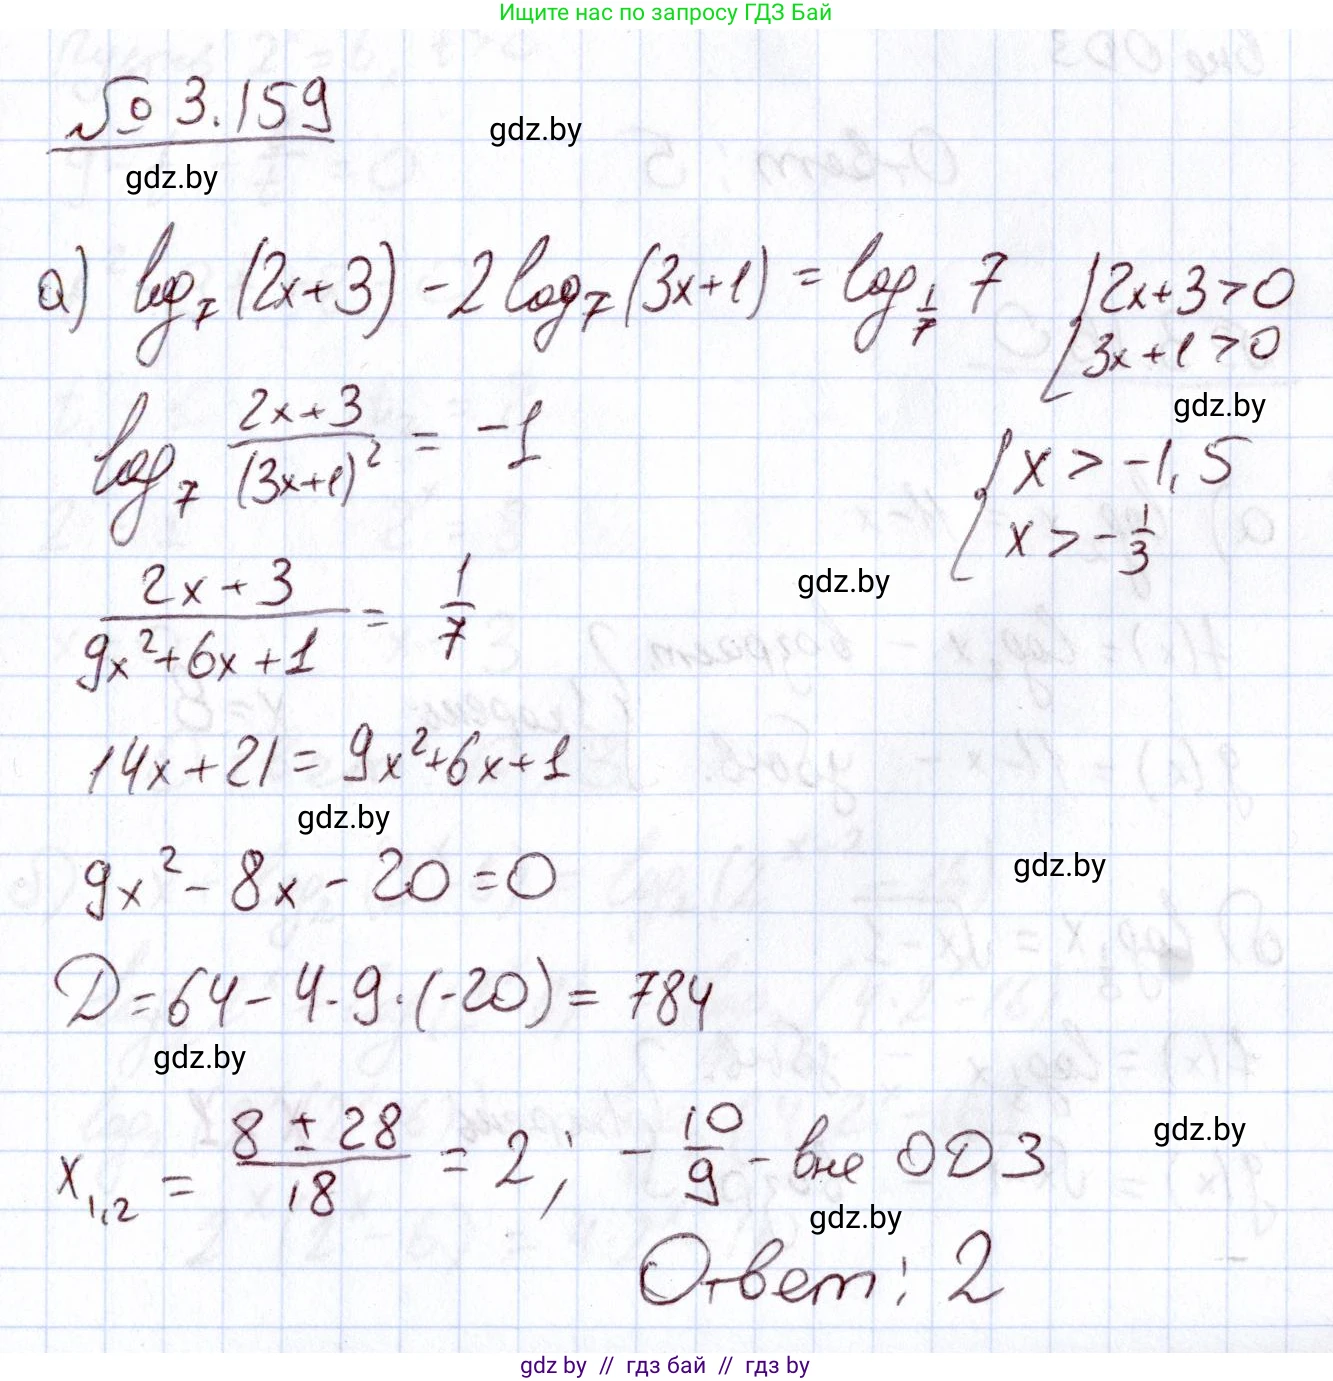 Ищите нас по запросу ГДЗ Бай
№ 3.159
gdz.by
gdz.by
а) log₇(2x+3) - 2log₇(3x+1) = log_{1/7} 7 { 2x+3>0
3x+1>0
gdz.by
log₇ (2x+3)/(3x+1)² = -1
{ x > -1,5
x > -1/3
gdz.by
(2x+3)/(9x²+6x+1) = 1/7
14x+21 = 9x²+6x+1
gdz.by
9x² - 8x - 20 = 0
gdz.by
D = 64 - 4·9·(-20) = 784
gdz.by
x₁,₂ = (8 ± 28)/18 = 2; -10/9 - вне ОДЗ
gdz.by
gdz.by
Ответ: 2
gdz by // гдз бай // гдз by